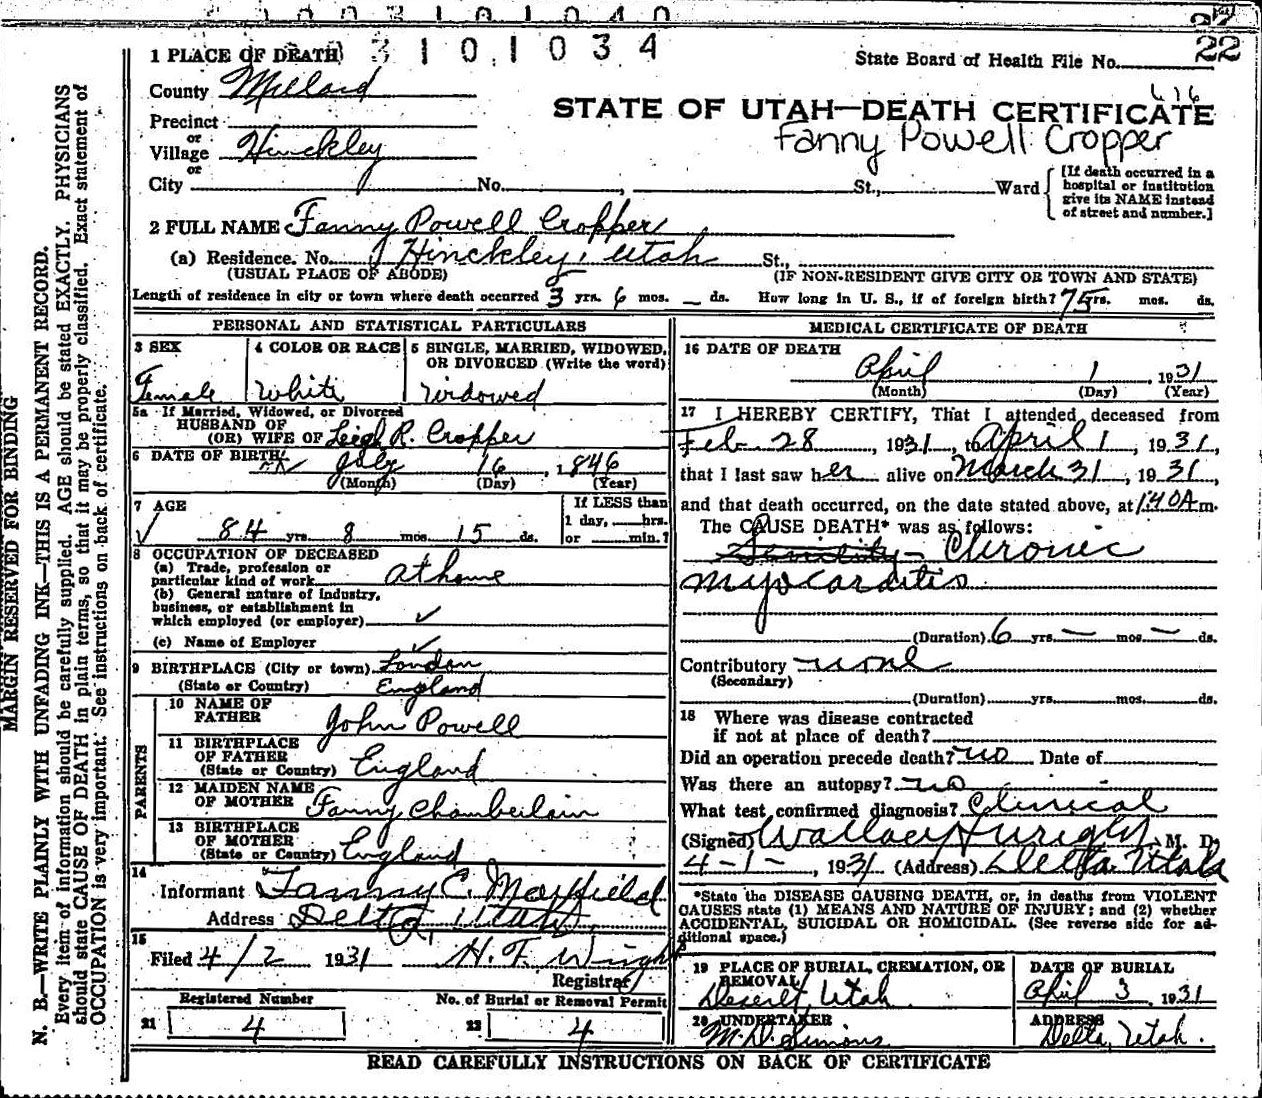 3101034
22
1 PLACE OF DEATH
State Board of Health File No.
County Millard
616
STATE OF UTAH—DEATH CERTIFICATE
Precinct
Fanny Powell Cropper
or
Village Hinckley
or
City No. St., Ward
[If death occurred in a hospital or institution give its NAME instead of street and number.]
2 FULL NAME Fanny Powell Cropper
(a) Residence. No. Hinckley, Utah St.,
(USUAL PLACE OF ABODE) (IF NON-RESIDENT GIVE CITY OR TOWN AND STATE)
Length of residence in city or town where death occurred 3 yrs. 6 mos. — ds. How long in U. S., if of foreign birth? 75 yrs. mos. ds.
PERSONAL AND STATISTICAL PARTICULARS
3 SEX
Female
4 COLOR OR RACE
White
5 SINGLE, MARRIED, WIDOWED, OR DIVORCED (Write the word)
Widowed
5a If Married, Widowed, or Divorced
HUSBAND OF
(OR) WIFE OF Leigh R. Cropper
6 DATE OF BIRTH July 16, 1846
(Month) (Day) (Year)
7 AGE
If LESS than
1 day, hrs.
or min.?
✓ 84 yrs. 8 mos. 15 ds.
8 OCCUPATION OF DECEASED
(a) Trade, profession or
particular kind of work at home
(b) General nature of industry,
business, or establishment in
which employed (or employer) ✓
(c) Name of Employer ✓
9 BIRTHPLACE (City or town) London
(State or Country) England
PARENTS
10 NAME OF
FATHER John Powell
11 BIRTHPLACE
OF FATHER
(State or Country) England
12 MAIDEN NAME
OF MOTHER Fanny Chamberlain
13 BIRTHPLACE
OF MOTHER
(State or Country) England
14
Informant Fanny C. Mayfield
Address Delta, Utah
15
Filed 4/2 1931 H. F. Wright
Registrar
Registered Number
21 4
No. of Burial or Removal Permit
22 4
MEDICAL CERTIFICATE OF DEATH
16 DATE OF DEATH
April 1, 1931
(Month) (Day) (Year)
17 I HEREBY CERTIFY, That I attended deceased from
Feb 28, 1931, to April 1, 1931,
that I last saw her alive on March 31, 1931,
and that death occurred, on the date stated above, at 1:40 A m.
The CAUSE DEATH* was as follows:
Senility – Chronic
myocarditis
(Duration) 6 yrs. — mos. — ds.
Contributory none
(Secondary)
(Duration) yrs. mos. ds.
18 Where was disease contracted
if not at place of death?
Did an operation precede death? no Date of
Was there an autopsy? no
What test confirmed diagnosis? Clinical
(Signed) Wallace Wright, M. D.
4-1-, 1931 (Address) Delta Utah
*State the DISEASE CAUSING DEATH, or, in deaths from VIOLENT
CAUSES state (1) MEANS AND NATURE OF INJURY; and (2) whether
ACCIDENTAL, SUICIDAL OR HOMICIDAL. (See reverse side for ad-
ditional space.)
19 PLACE OF BURIAL, CREMATION, OR
REMOVAL
Deseret, Utah
DATE OF BURIAL
April 3, 1931
20 UNDERTAKER
M. D. Simons
ADDRESS
Delta, Utah.
READ CAREFULLY INSTRUCTIONS ON BACK OF CERTIFICATE
MARGIN RESERVED FOR BINDING
N. B.—WRITE PLAINLY WITH UNFADING INK—THIS IS A PERMANENT RECORD.
Every item of information should be carefully supplied. AGE should be stated EXACTLY. PHYSICIANS
should state CAUSE OF DEATH in plain terms, so that it may be properly classified. Exact statement of
OCCUPATION is very important. See instructions on back of certificate.